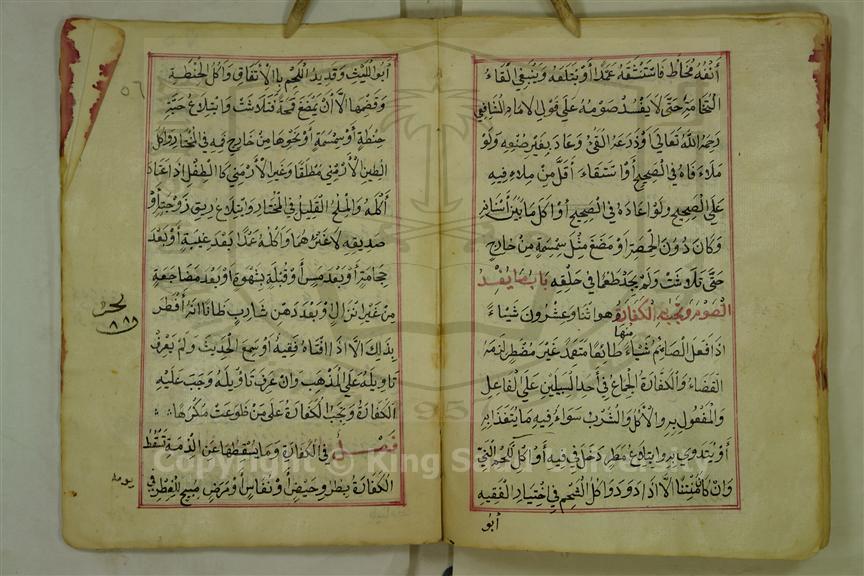 أنفه مخاط فاستنشقه عمدا أو ابتلعه وينبغي القاء
النخامة حتى لا يفسد صومه على قول الامام الشافعي
رحمه الله تعالى أو ذرعه القيء وعاد بغير صنعه ولو
ملاء فاه في الصحيح أو استقاء أقل من ملاء فيه
على الصحيح ولو اعاده في الصحيح أو اكل ما بين أسنانه
وكان دون الحمصة أو مضغ مثل سمسمة من خارج
حتى تلاشت ولم يجد طعما في حلقه باب ما يفسد
الصوم وتجب به الكفارة وهو اثنا وعشرون شياءً
منها
اذا فعل الصائم شياء طائعا متعمدا غير مضطر لزمه
القضاء والكفارة الجماع في أحد السبيلين على الفاعل
والمفعول به والأكل والشرب سواء فيه ما يتغذا به
أو يتدوي به وابتلاع مطر دخل في فيه أو اكل اللحم النيّ
وان كان منتنا الا اذا دود واكل الشحم في اختيار الفقيه
أبو
٥٦
أبو الليث وقديد اللحم بالاتفاق واكل الحنطة
وقضمها الا أن يمضغ قمحة فتلاشت وابتلاع حبة
حنطة أو سمسمة أو نحوها من خارج فمه في المختار واكل
الطين الأرمني مطلقا وغير الأرمني كالطفل اذا اعتاد
أكله والملح القليل في المختار وابتلاع ريق زوجته أو
صديقه لا غيرهما واكله عمدا بعد غيبة أو بعد
حجامة أو بعد مس أو قبلة بشهوة أو بعد مضاجعة
من غير انزال او بعد دهن شارب ظانا انه أفطر
بذلك الا اذا افتاه فقيه أو سمع الحديث ولم يعرف
تاويله على المذهب وان عرف تاويله وجب عليه
الكفارة وتجب الكفارة على من طاوعت مكرها
فصل في الكفارة وما يسقطها عن الذمة تسقط
الكفارة بطرو حيض أو نفاس أو مرض مبيح للفطر في
يومه
Copyright © King Saud University